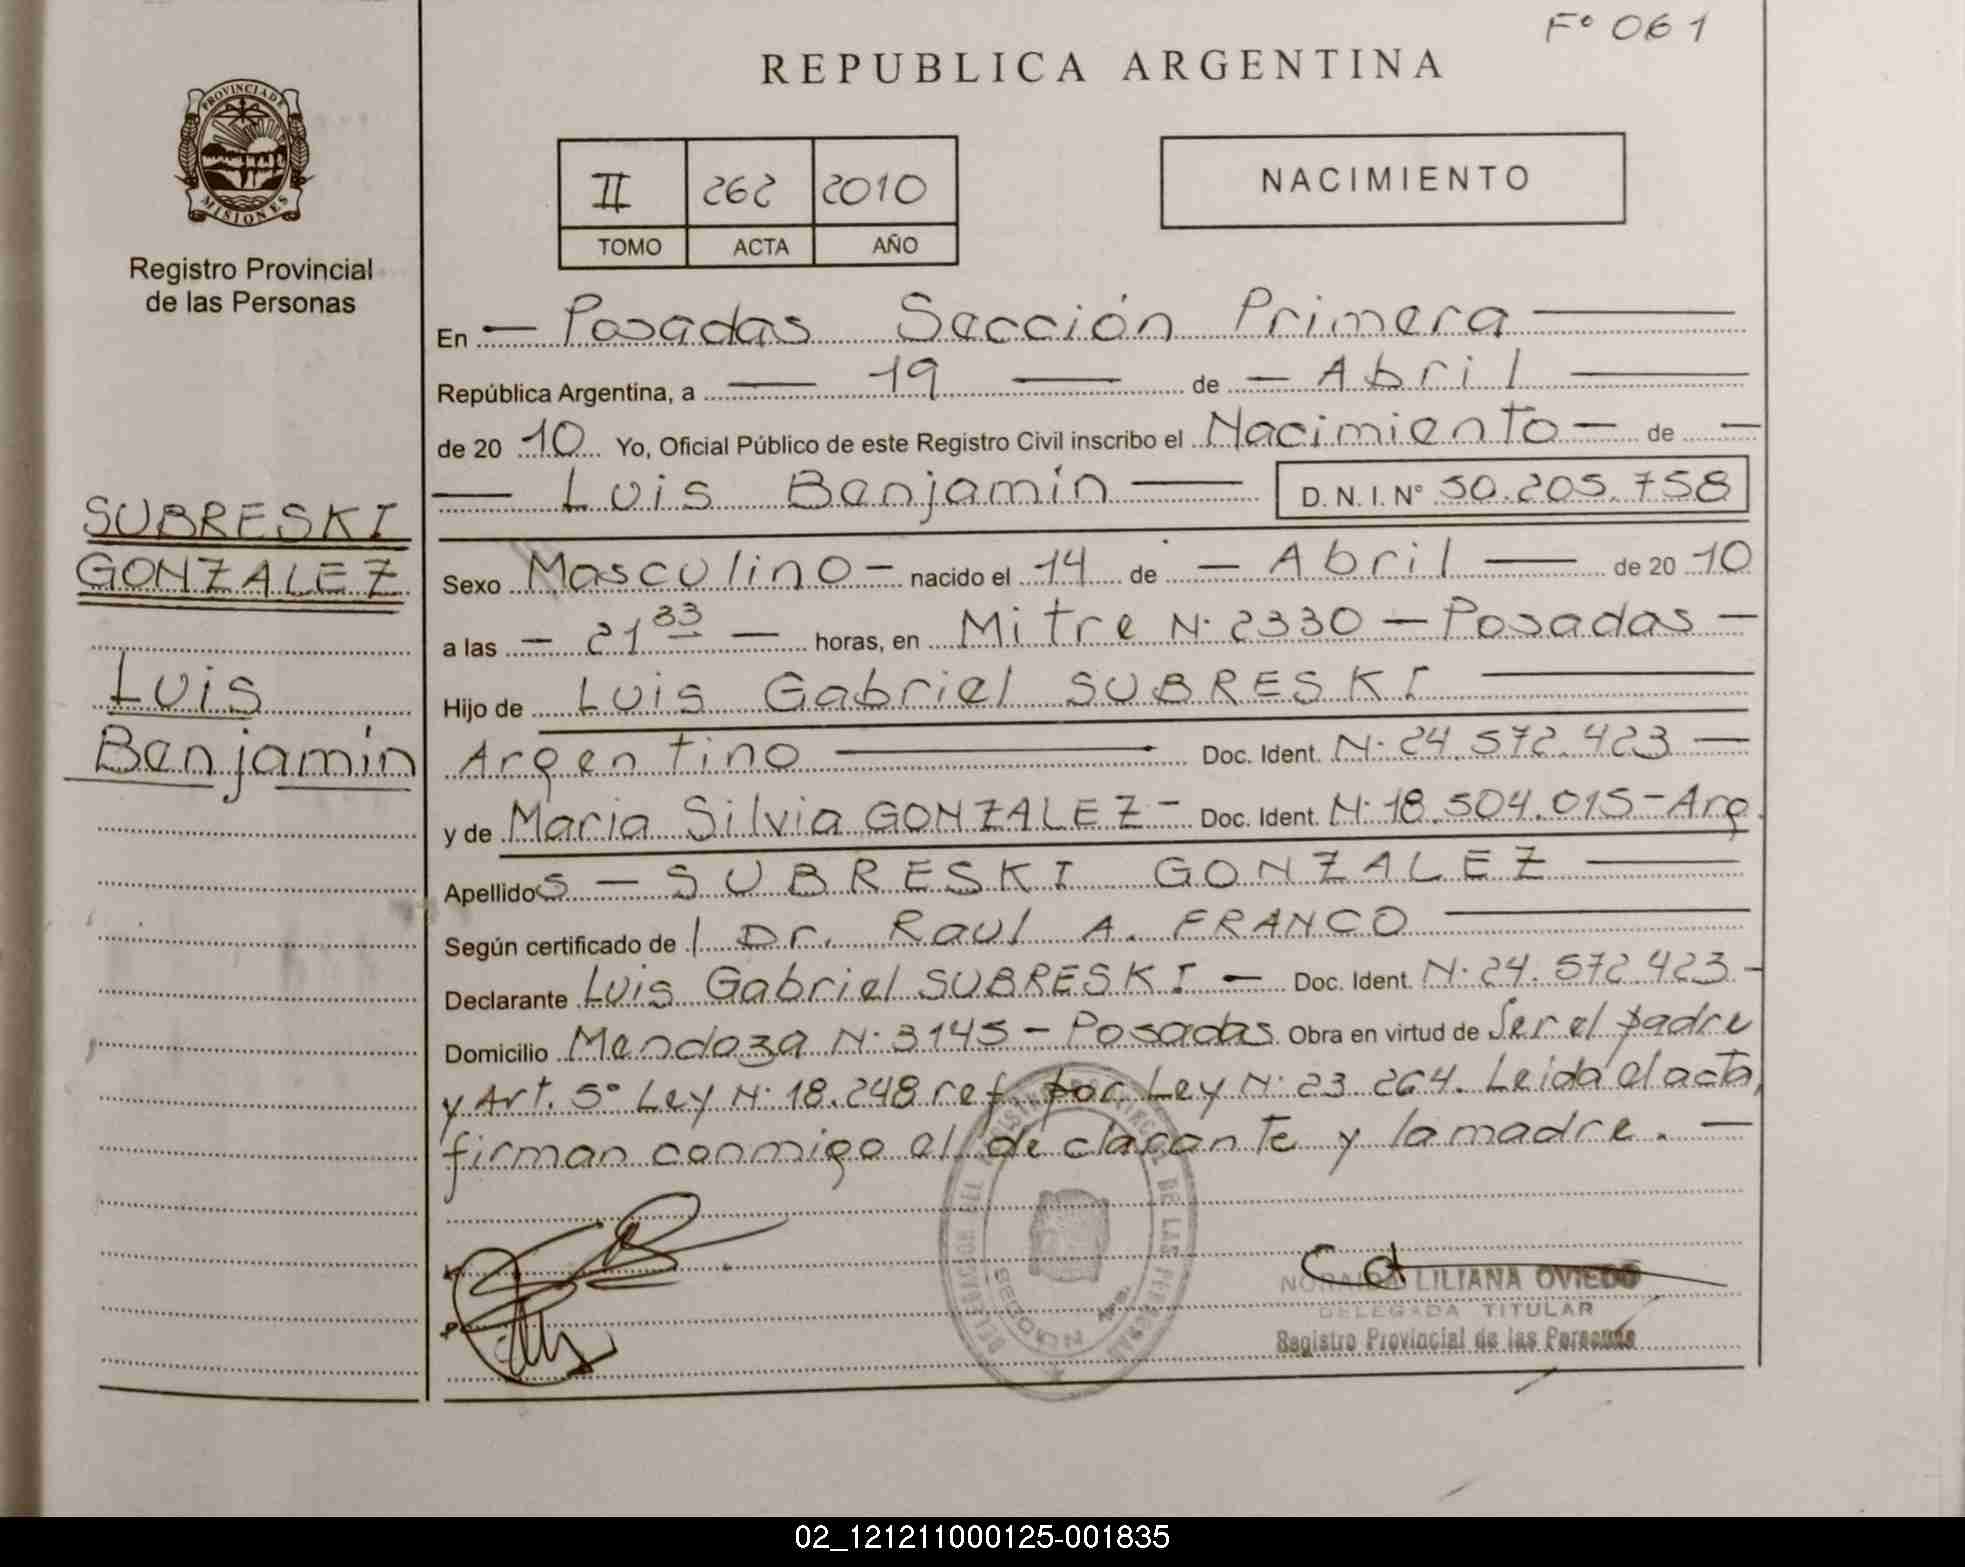 F° 061
REPUBLICA ARGENTINA
PROVINCIA DE
MISIONES
Registro Provincial
de las Personas
II 262 2010
TOMO ACTA AÑO
NACIMIENTO
En — Posadas Sección Primera —
República Argentina, a — 19 — de — Abril —
de 20 10 Yo, Oficial Público de este Registro Civil inscribo el Nacimiento — de —
— Luis Benjamín — D. N. I. N° 50.205.758
SUBRESKI
GONZALEZ
Luis
Benjamín
Sexo Masculino — nacido el 14 de — Abril — de 20 10
a las — 21 33 — horas, en Mitre N· 2330 — Posadas —
Hijo de Luis Gabriel SUBRESKI —
Argentino — Doc. Ident. N· 24.572.423 —
y de Maria Silvia GONZALEZ — Doc. Ident. N· 18.504.015 - Arg.
Apellidos — SUBRESKI GONZALEZ —
Según certificado de | Dr. Raul A. FRANCO —
Declarante Luis Gabriel SUBRESKI — Doc. Ident. N· 24.572.423 —
Domicilio Mendoza N· 3145 - Posadas Obra en virtud de Ser el padre
y Art. 5° Ley N· 18.248 ref. por Ley N· 23.264. Leida el acta,
firman conmigo el declarante y la madre. —
DE LAS PERSONAS
NORAIDA LILIANA OVIEDO
DELEGADA TITULAR
Registro Provincial de las Personas
02_121211000125-001835